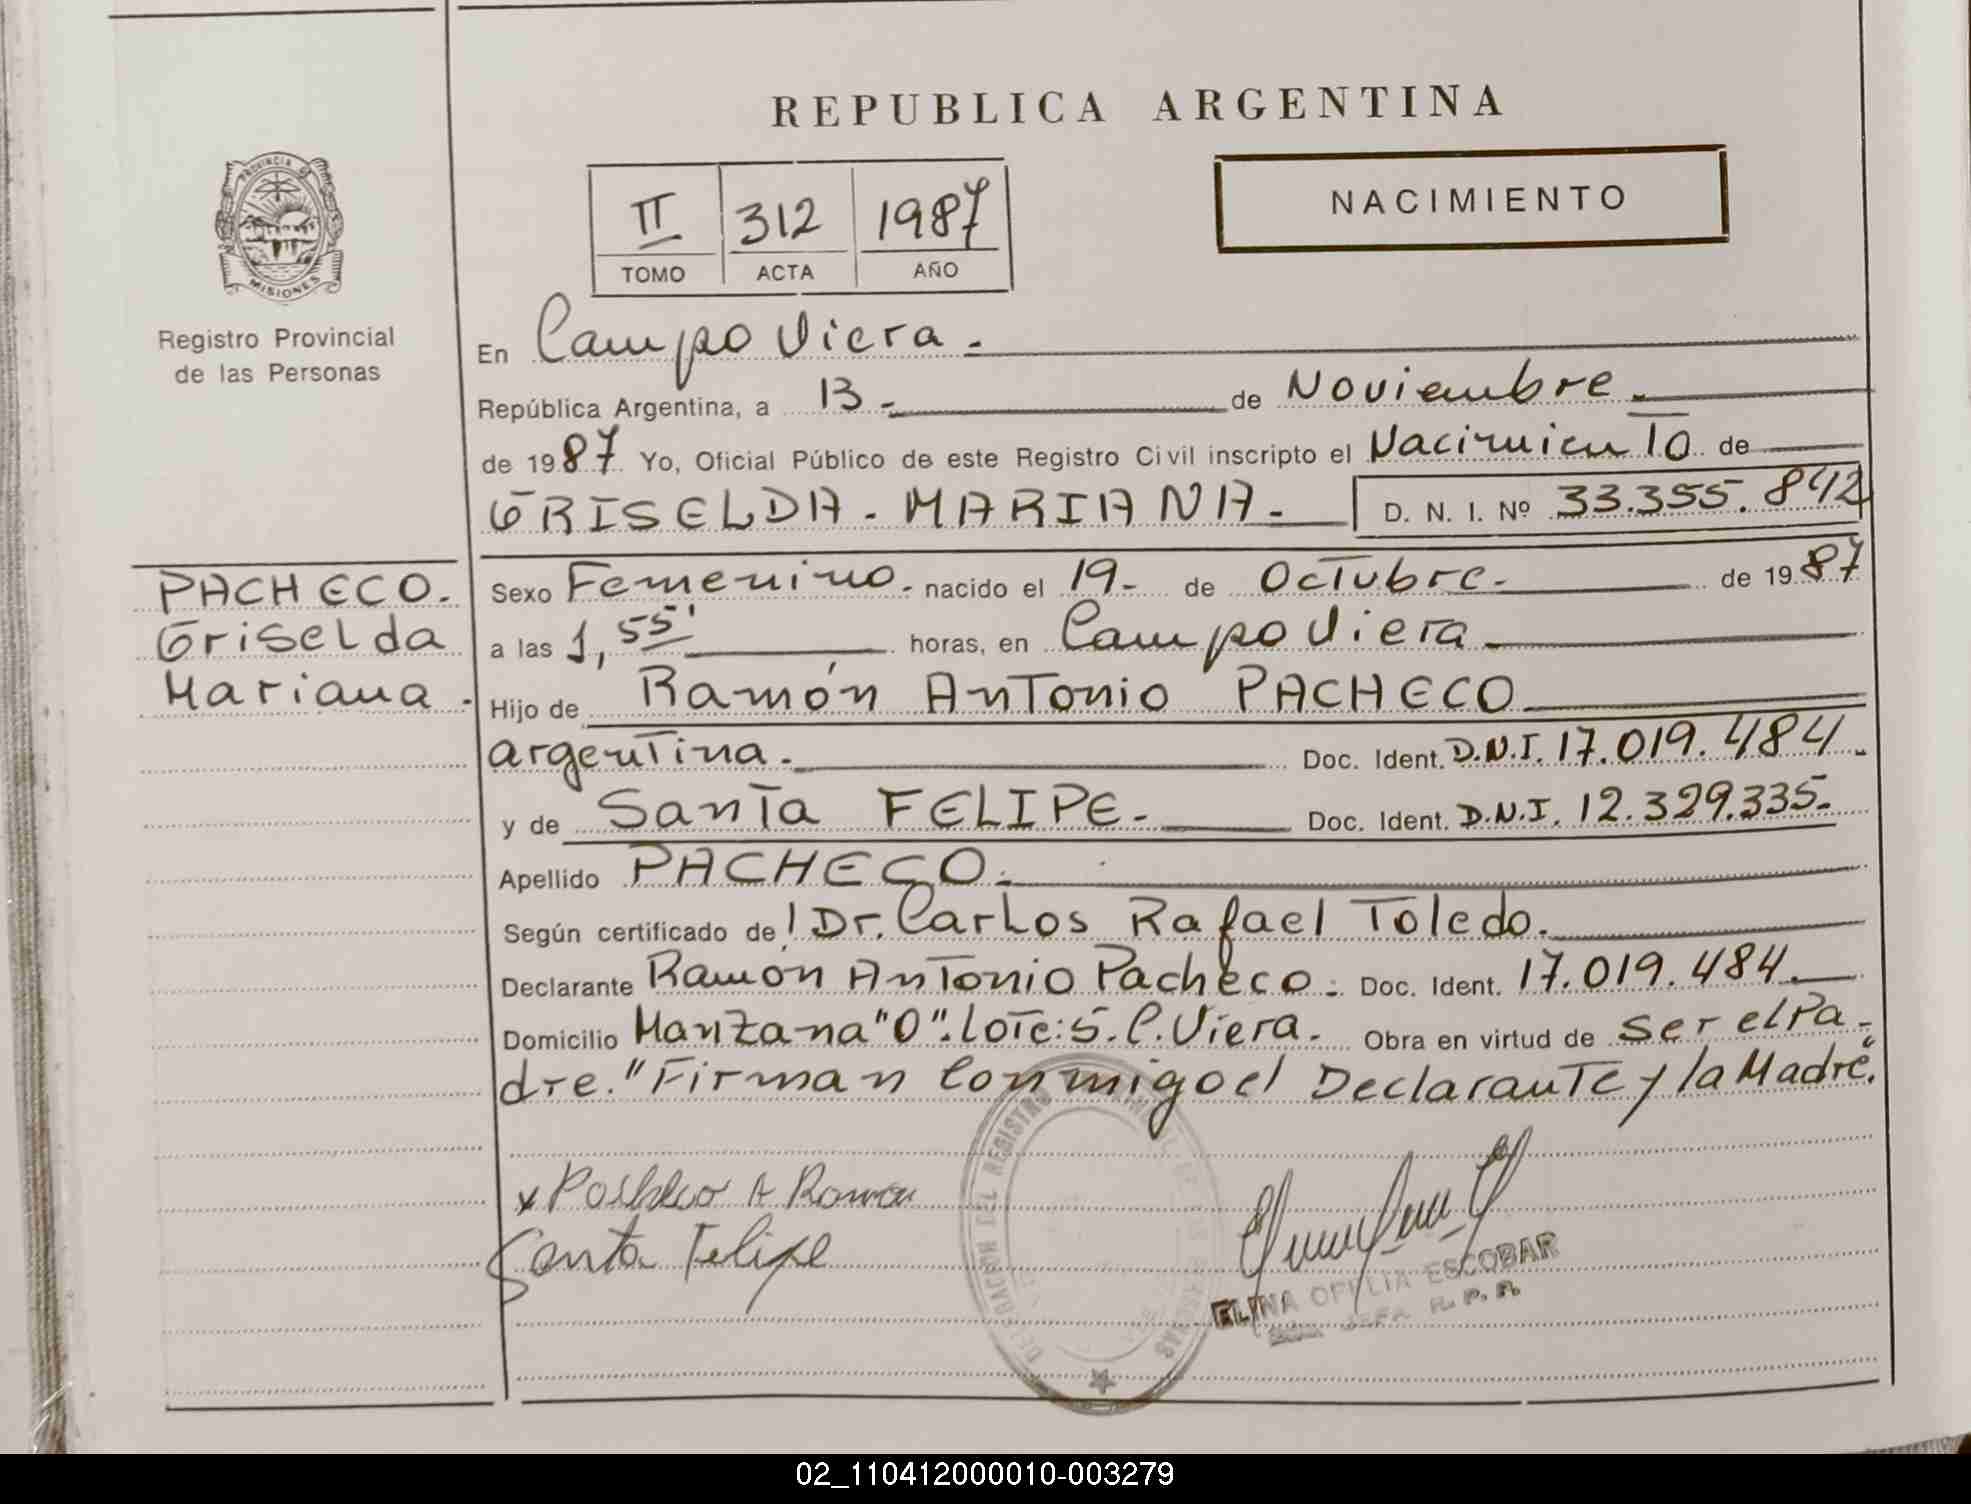 REPUBLICA ARGENTINA
PROVINCIA
MISIONES
Registro Provincial
de las Personas
II 312 1987
TOMO ACTA AÑO
NACIMIENTO
En Campo Viera.
República Argentina, a 13. de Noviembre.
de 1987 Yo, Oficial Público de este Registro Civil inscripto el Nacimiento de
GRISELDA. MARIANA. D. N. I. Nº 33.355.842
PACHECO.
Griselda
Mariana.
Sexo Femenino. nacido el 19. de Octubre. de 1987
a las 1,55' horas, en Campo Viera
Hijo de Ramón Antonio PACHECO
argentina. Doc. Ident. D.N.I. 17.019.484.
y de Santa FELIPE. Doc. Ident. D.N.I. 12.329.335.
Apellido PACHECO.
Según certificado de Dr. Carlos Rafael Toledo.
Declarante Ramón Antonio Pacheco. Doc. Ident. 17.019.484.
Domicilio Manzana "O". Lote: 5. C. Viera. Obra en virtud de ser el Pa-
dre. "Firman Conmigo el Declarante y la Madre".
x Pacheco A Ramon
Santa Felipe
ELINA OFELIA ESCOBAR
JEFA R. P. P.
DELEGACION DEL REGISTRO PROVINCIAL DE LAS PERSONAS
02_110412000010-003279